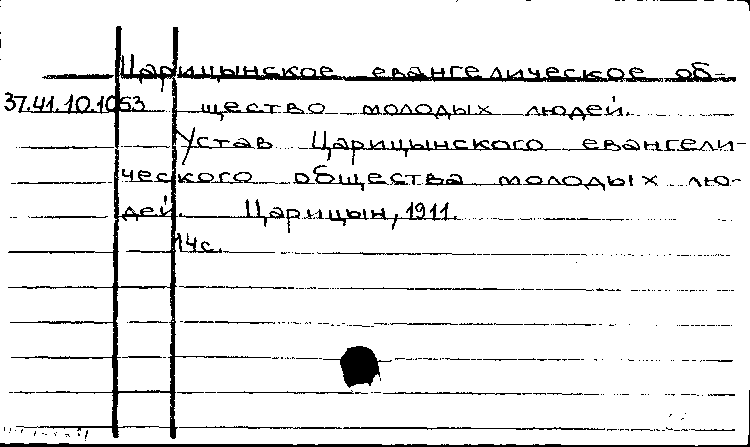 Царицынское евангелическое об-
37.41.10.1053 щество молодых людей.
Устав Царицынского евангели-
ческого общества молодых лю-
дей. Царицын, 1911.
14с.